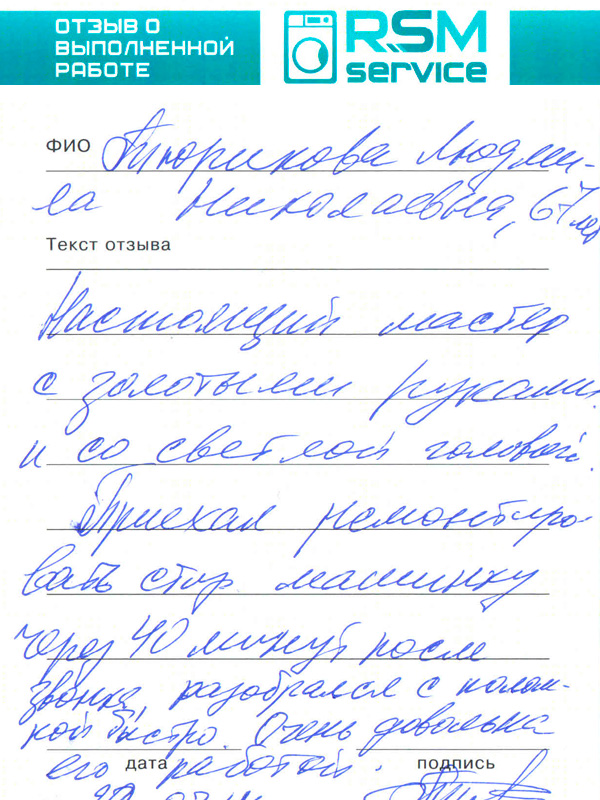 ОТЗЫВ О
ВЫПОЛНЕННОЙ
РАБОТЕ
RSM
service
ФИО Тюрикова Людми-
ла Николаевна, 67 лет
Текст отзыва
Настоящий мастер
с золотыми руками
и со светлой головой.
Приехал ремонтиро-
вать стир машинку
через 40 минут после
звонка, разобрался с полом-
кой быстро. Очень довольна
его работой.
дата подпись